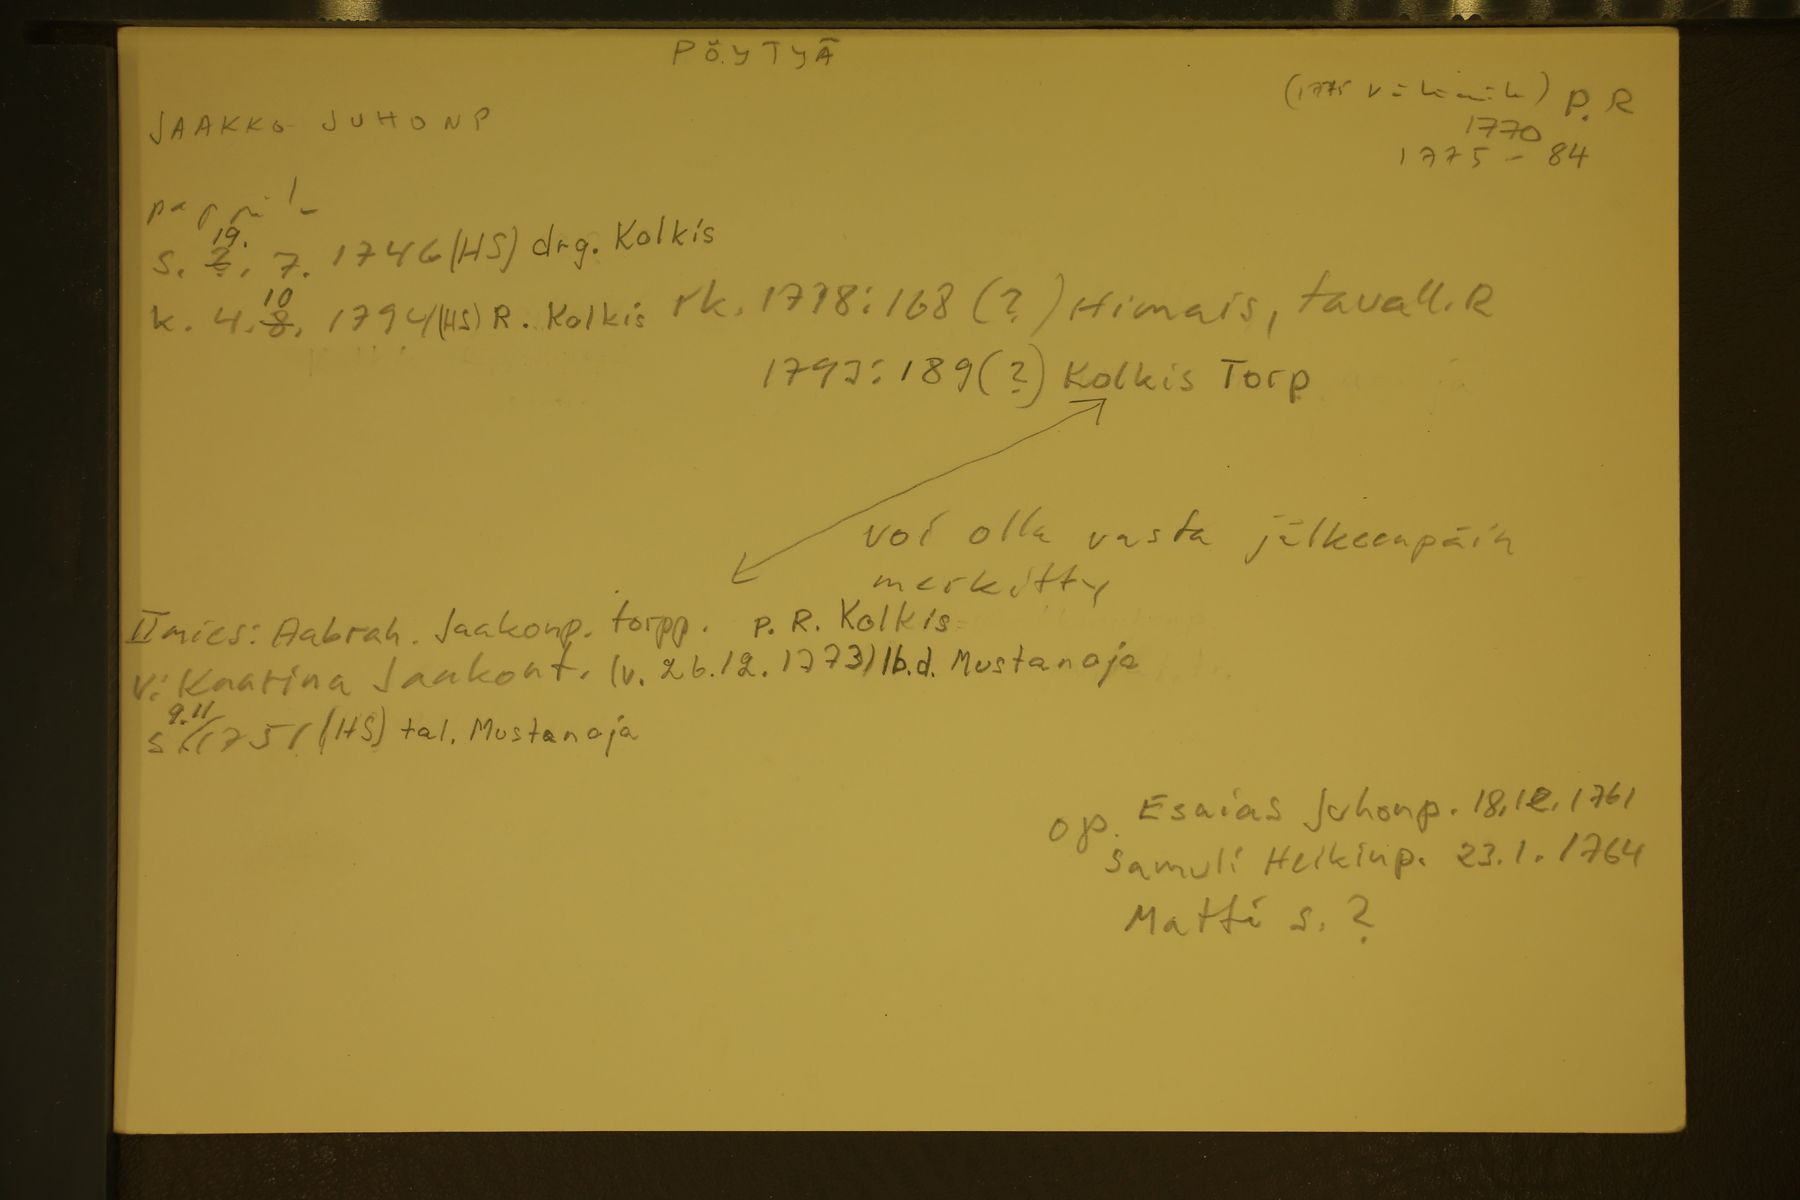 PÖYTYÄ
JAAKKO JUHONP
(1775 ) P.R
1770
1775 - 84
19.
s. 2. 7. 1746 (HS) drg. Kolkis
10
k. 4. 8. 1794 (HS) R. Kolkis rk. 1778:168 (?) Himais, tavall. R
1793:189 (?) Kolkis Torp
voi olla vasta jälkeenpäin
merkitty
II mies: Aabrah. Jaakonp. torpp. P. R. Kolkis
V: Kaarina Jaakont. (v. 26.12.1773) lb.d. Mustanoja
9.11
s. 1751 (HS) tal. Mustanoja
op. Esaias Juhonp. 18.12.1761
Samuli Heikinp. 23.1.1764
Matti s. ?